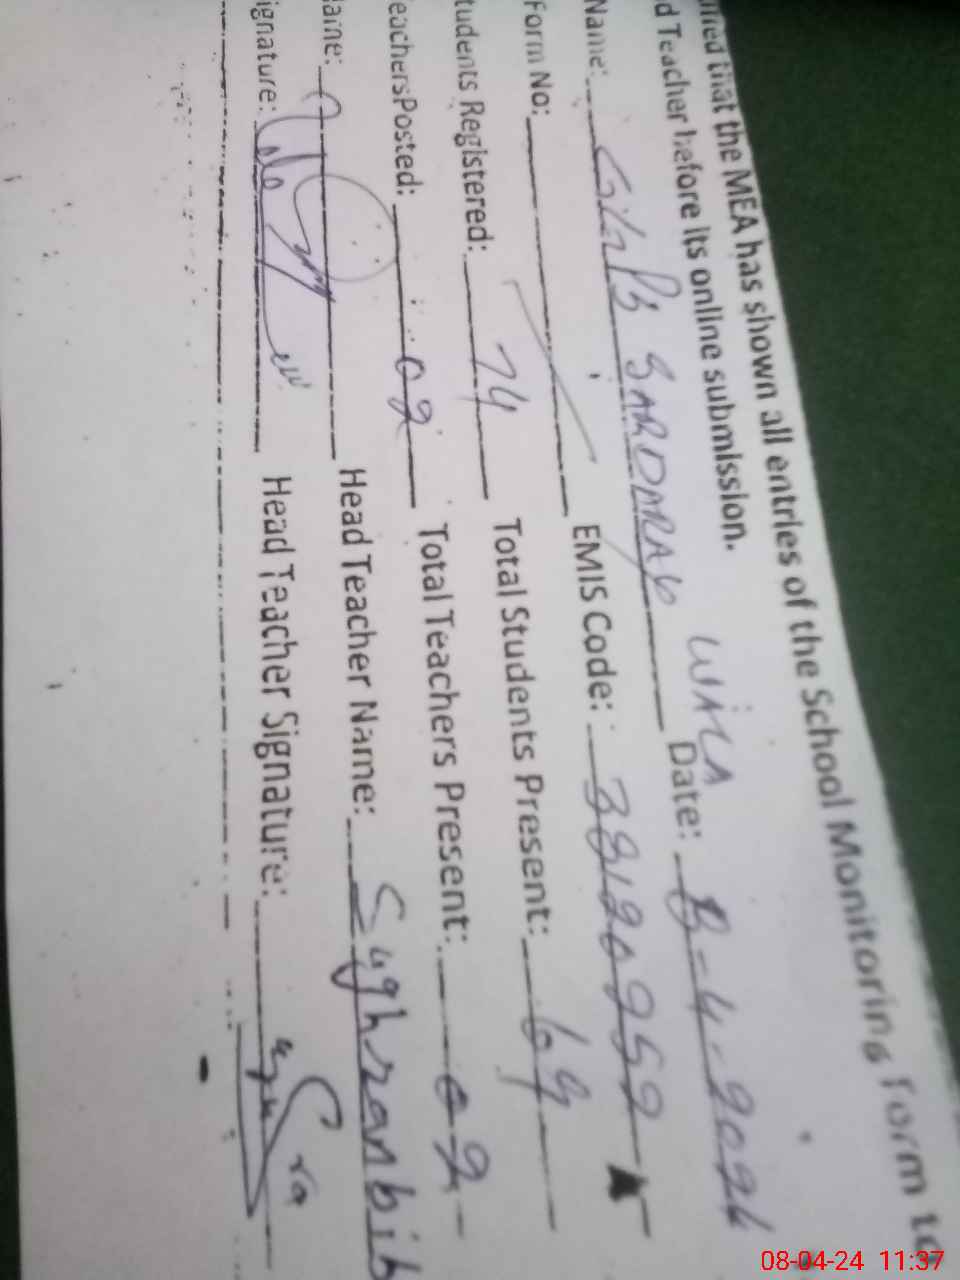 that the MEA has shown all entries of the School Monitoring Form to
d Teacher before its online submission.
Name: GGPS SARDARAY WALA Date: 8-4-2024
Form No: EMIS Code: 38120959
tudents Registered: 74 Total Students Present: 69
eachersPosted: 02 Total Teachers Present: 02
ame: Head Teacher Name: Sughranbib
ignature: Head Teacher Signature:
08-04-24 11:37